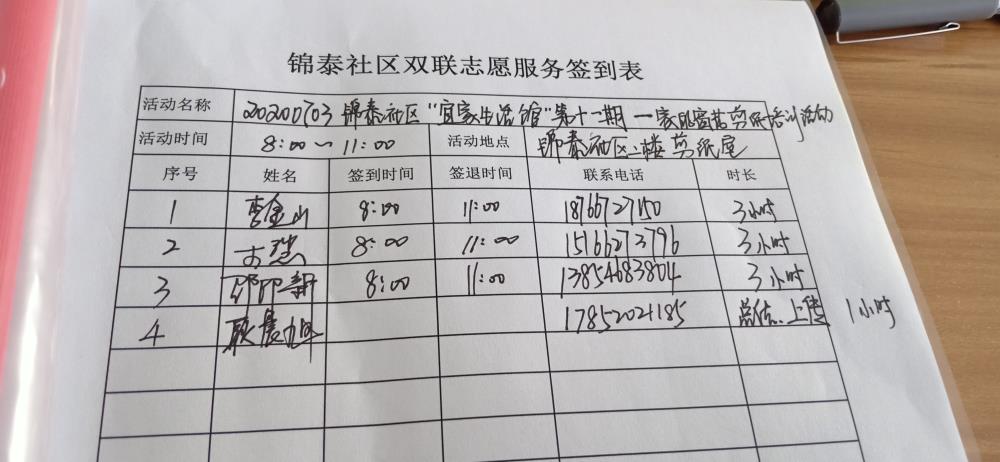 锦泰社区双联志愿服务签到表
活动名称 20200703 锦泰社区"宜家生活馆"第十二期 一 剪纸培训活动
活动时间 8:00~11:00 活动地点 锦泰社区二楼剪纸室
序号 姓名 签到时间 签退时间 联系电话 时长
1 李金山 8:00 11:00 18766727150 3小时
2 8:00 11:00 15166273796 3小时
3 8:00 11:00 13854683804 3小时
4 耿晨旭 17852021185 总结、上传 1小时